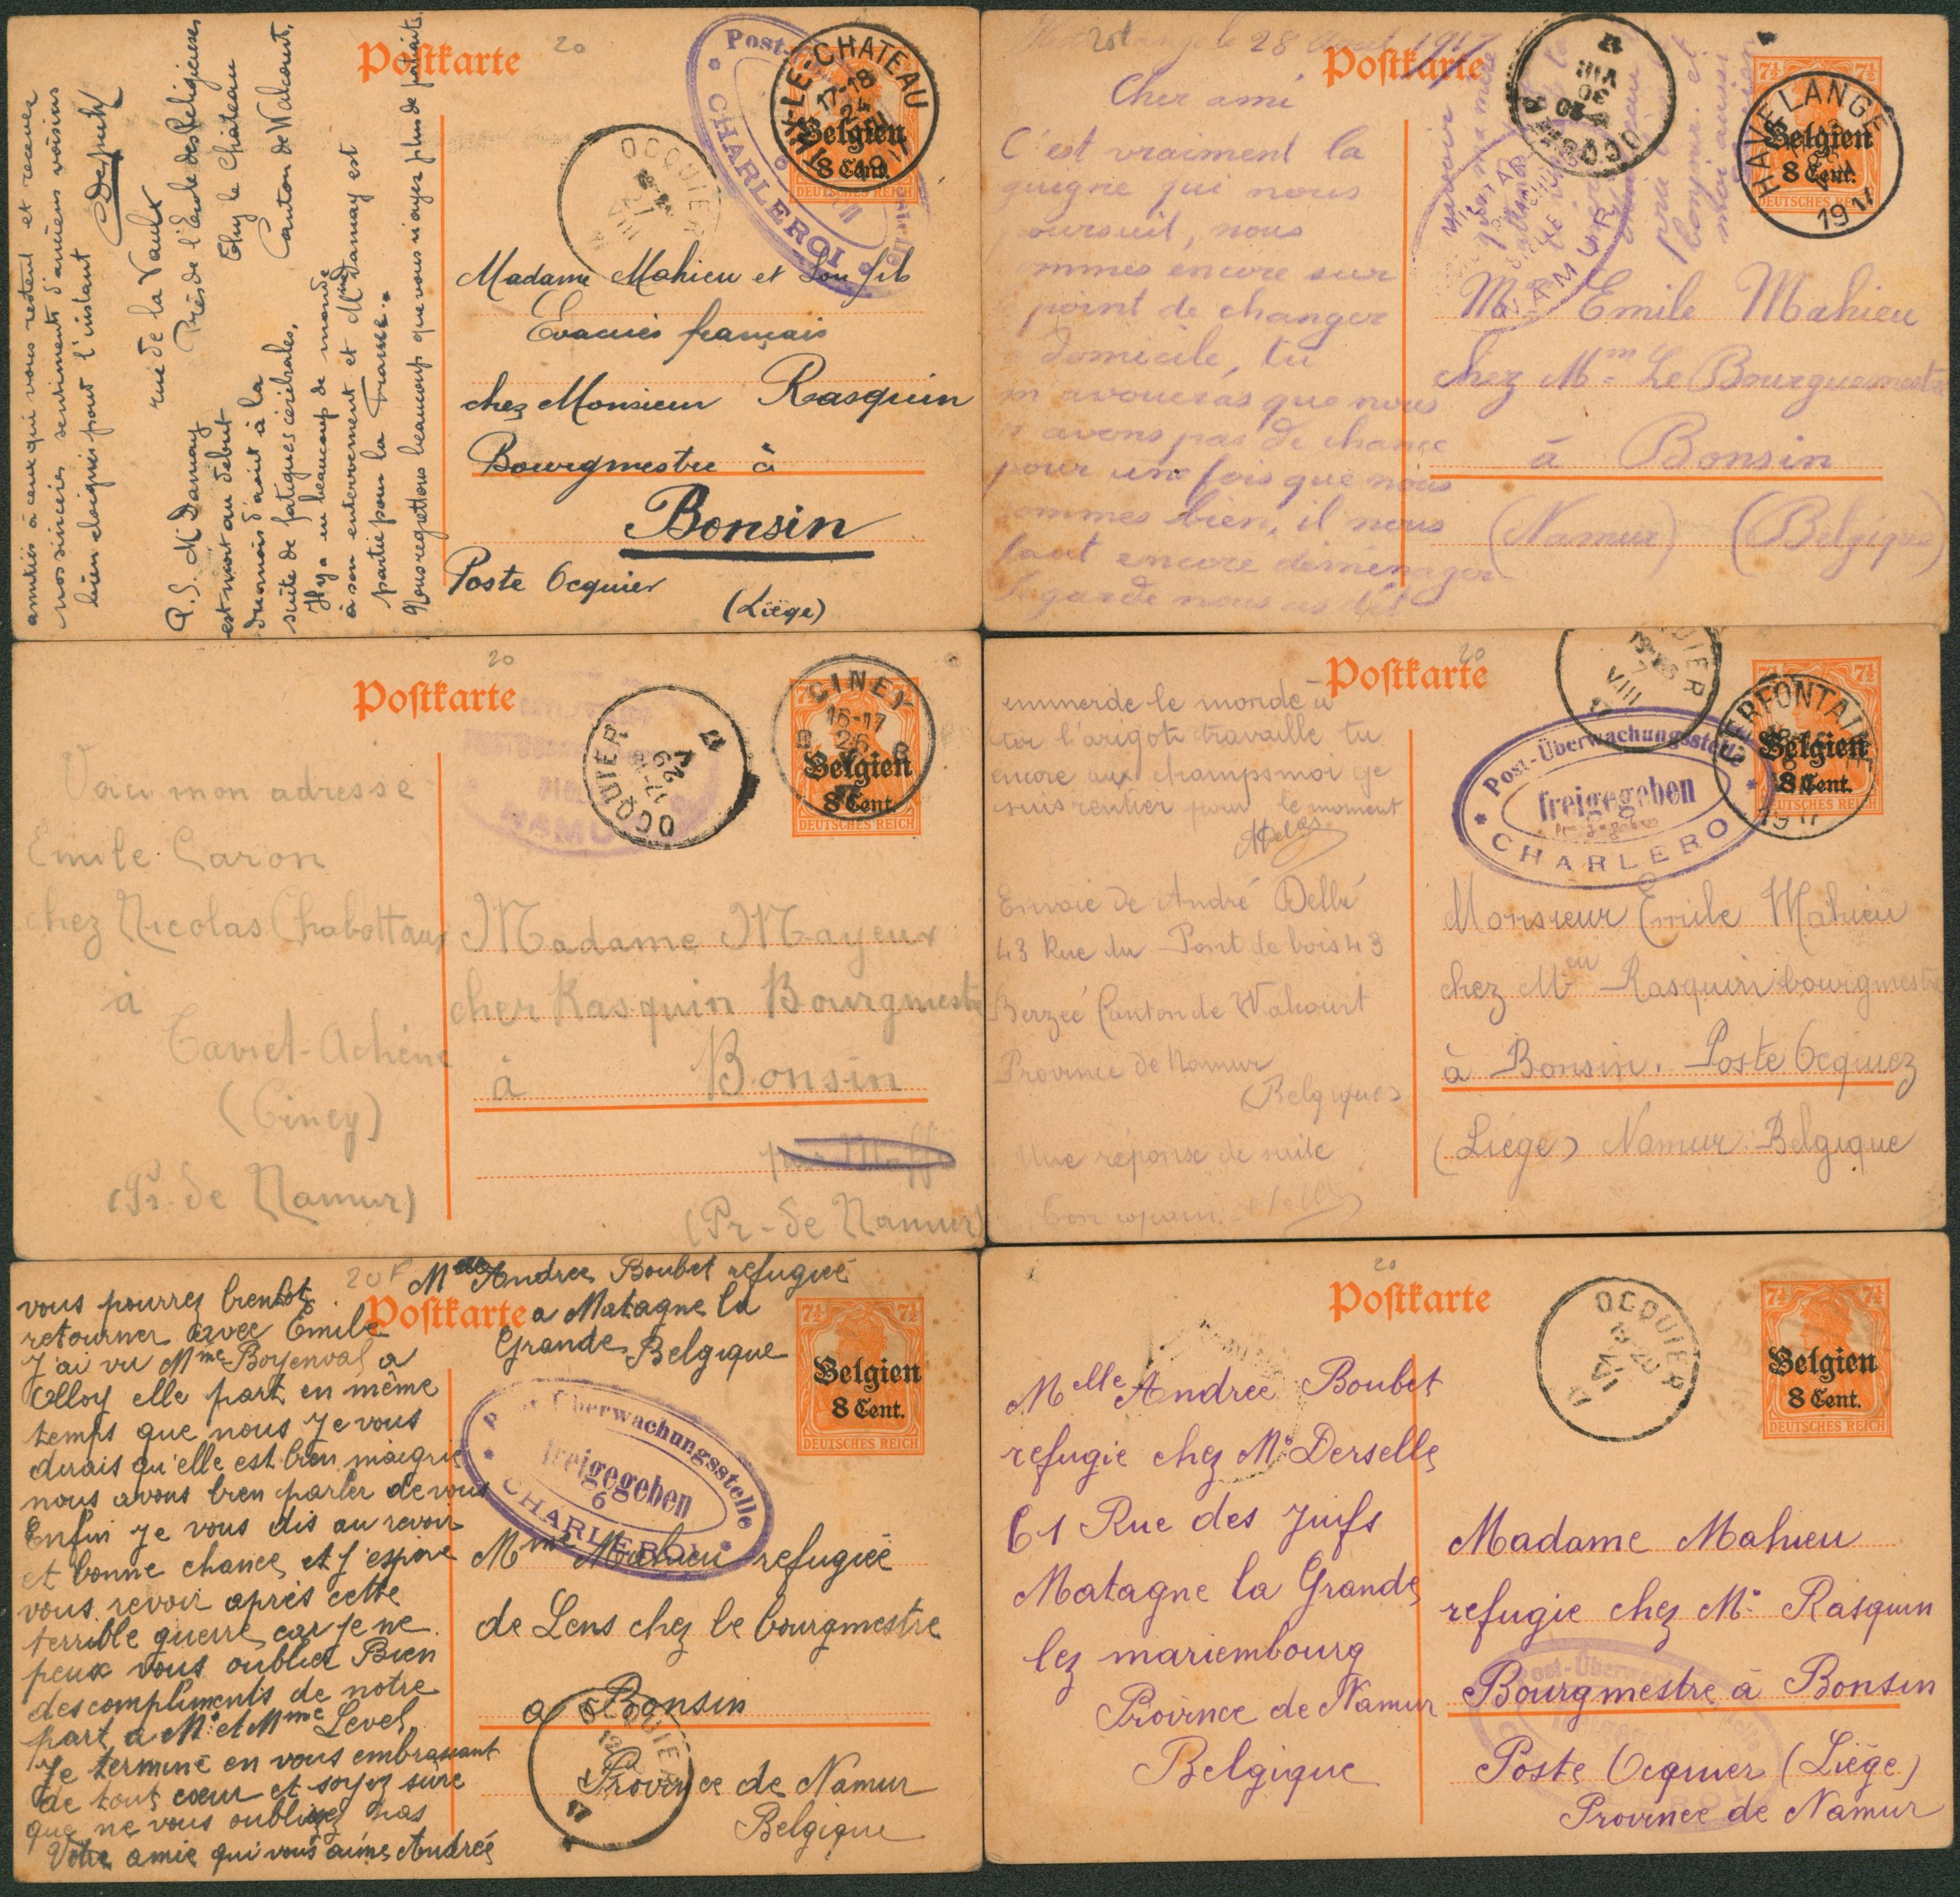 Postkarte
20
THY-LE-CHATEAU
17-18
24
Belgien
8 Cent.
DEUTSCHES REICH
CHARLEROI
OCQUIER
amitiés à ceux qui vous restent et recevez
nos sincères sentiments d'anciens voisins
bien éloignés pour l'instant
rue de la Vaulx
Près de l'école des Religieuses
Thy le Château
Canton de Walcourt,
P.S. Mr Damay
est mort au début
du mois d'août à la
suite de fatigues cérébrales.
Il y a eu beaucoup de monde
à son enterrement et Mme Damay est
partie pour la France.
Nous regrettons beaucoup que vous n'ayez plus de patients.
Madame Mahieu et Son fils
Evacués français
chez Monsieur Rasquin
Bourgmestre à
Bonsin
Poste Ocquier
(Liège)
Postkarte
28 Août 1917
Cher ami
C'est vraiment la
guigne qui nous
poursuit, nous
sommes encore sur
point de changer
domicile, tu
m'avoueras que nous
n'avons pas de chance
pour une fois que nous
sommes bien, il nous
faut encore déménager
HAVELANGE
1917
7½
7½
Belgien
8 Cent.
DEUTSCHES REICH
OCQUIER
NAMUR
Mr Emile Mahieu
chez Mr Le Bourguemestre
à Bonsin
(Namur) (Belgique)
Postkarte
20
OCQUIER
17-18
29
V
17
CINEY
16-17
26
7½
7½
Belgien
8 Cent.
DEUTSCHES REICH
NAMUR
Voici mon adresse
Emile Caron
chez Nicolas Chabottaux
à
Taviet-Achêne
(Ciney)
(Pr. de Namur)
Madame Mayeux
chez Rasquin Bourgmestre
à Bonsin
(Pr-de Namur)
Postkarte
20
OCQUIER
7
VIII
CERFONTAINE
1917
7½
Belgien
8 Cent.
DEUTSCHES REICH
Post-Überwachungsstelle
freigegeben
CHARLEROI
emmerde le monde
l'arigot travaille tu
encore aux champs moi je
suis rentier pour le moment
Envoie de André Dellé
43 Rue du Pont de bois 43
Berzée Canton de Walcourt
Province de Namur
(Belgique)
Une réponse de suite
Ton copain
Monsieur Emile Mahieu
chez Meu Rasquin bourgmestre
à Bonsin. Poste Ocquiez
(Liége) Namur Belgique
20F
Melle Andrée Boubet refugiée
a Matagne la
Grande Belgique
Postkarte
7½
7½
Belgien
8 Cent.
DEUTSCHES REICH
Post-Überwachungsstelle
freigegeben
6
CHARLEROI
vous pourrez bientot
retourner avec Emile
J'ai vu Mme Boyenval a
Olloy elle part en même
temps que nous Je vous
dirais qu'elle est bien maigrie
nous avons bien parler de vous
Enfin je vous dis au revoir
et bonne chance et j'espère
vous revoir après cette
terrible guerre car je ne
peux vous oublier Bien
des compliments de notre
part a Mr et Mme Level
Je termine en vous embrassant
de tout coeur et soyez sûre
que ne vous oubliez pas
Votre amie qui vous aime Andrée
Mme Mahieu refugiée
de Lens chez le bourgmestre
a Bonsin
Province de Namur
Belgique
OCQUIER
17
Postkarte
20
OCQUIER
19-20
7½
7½
Belgien
8 Cent.
DEUTSCHES REICH
Melle Andrée Boubet
refugie chez Mr Derselle
61 Rue des Juifs
Matagne la Grande
lez mariembourg
Province de Namur
Belgique
Madame Mahieu
refugie chez Mr Rasquin
Bourgmestre a Bonsin
Poste Ocquier (Liège)
Province de Namur
Post-Überwachungsstelle